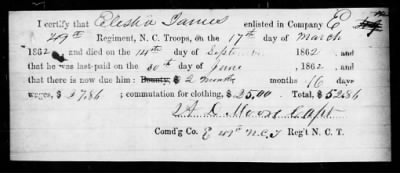 I certify that Elisha James enlisted in Company E
49th Regiment, N. C. Troops, on the 17th day of March
1862 and died on the 14th day of Sept 1862, and
that he was last paid on the 30th day of June, 1862, and
that there is now due him: Bounty, $ 2 months 16 days
wages, $ 27.86; commutation for clothing, $ 25.00 Total, $ 52.86
A D Moore Capt
Com'd'g Co. E 49th N.C.T Reg't N. C. T.